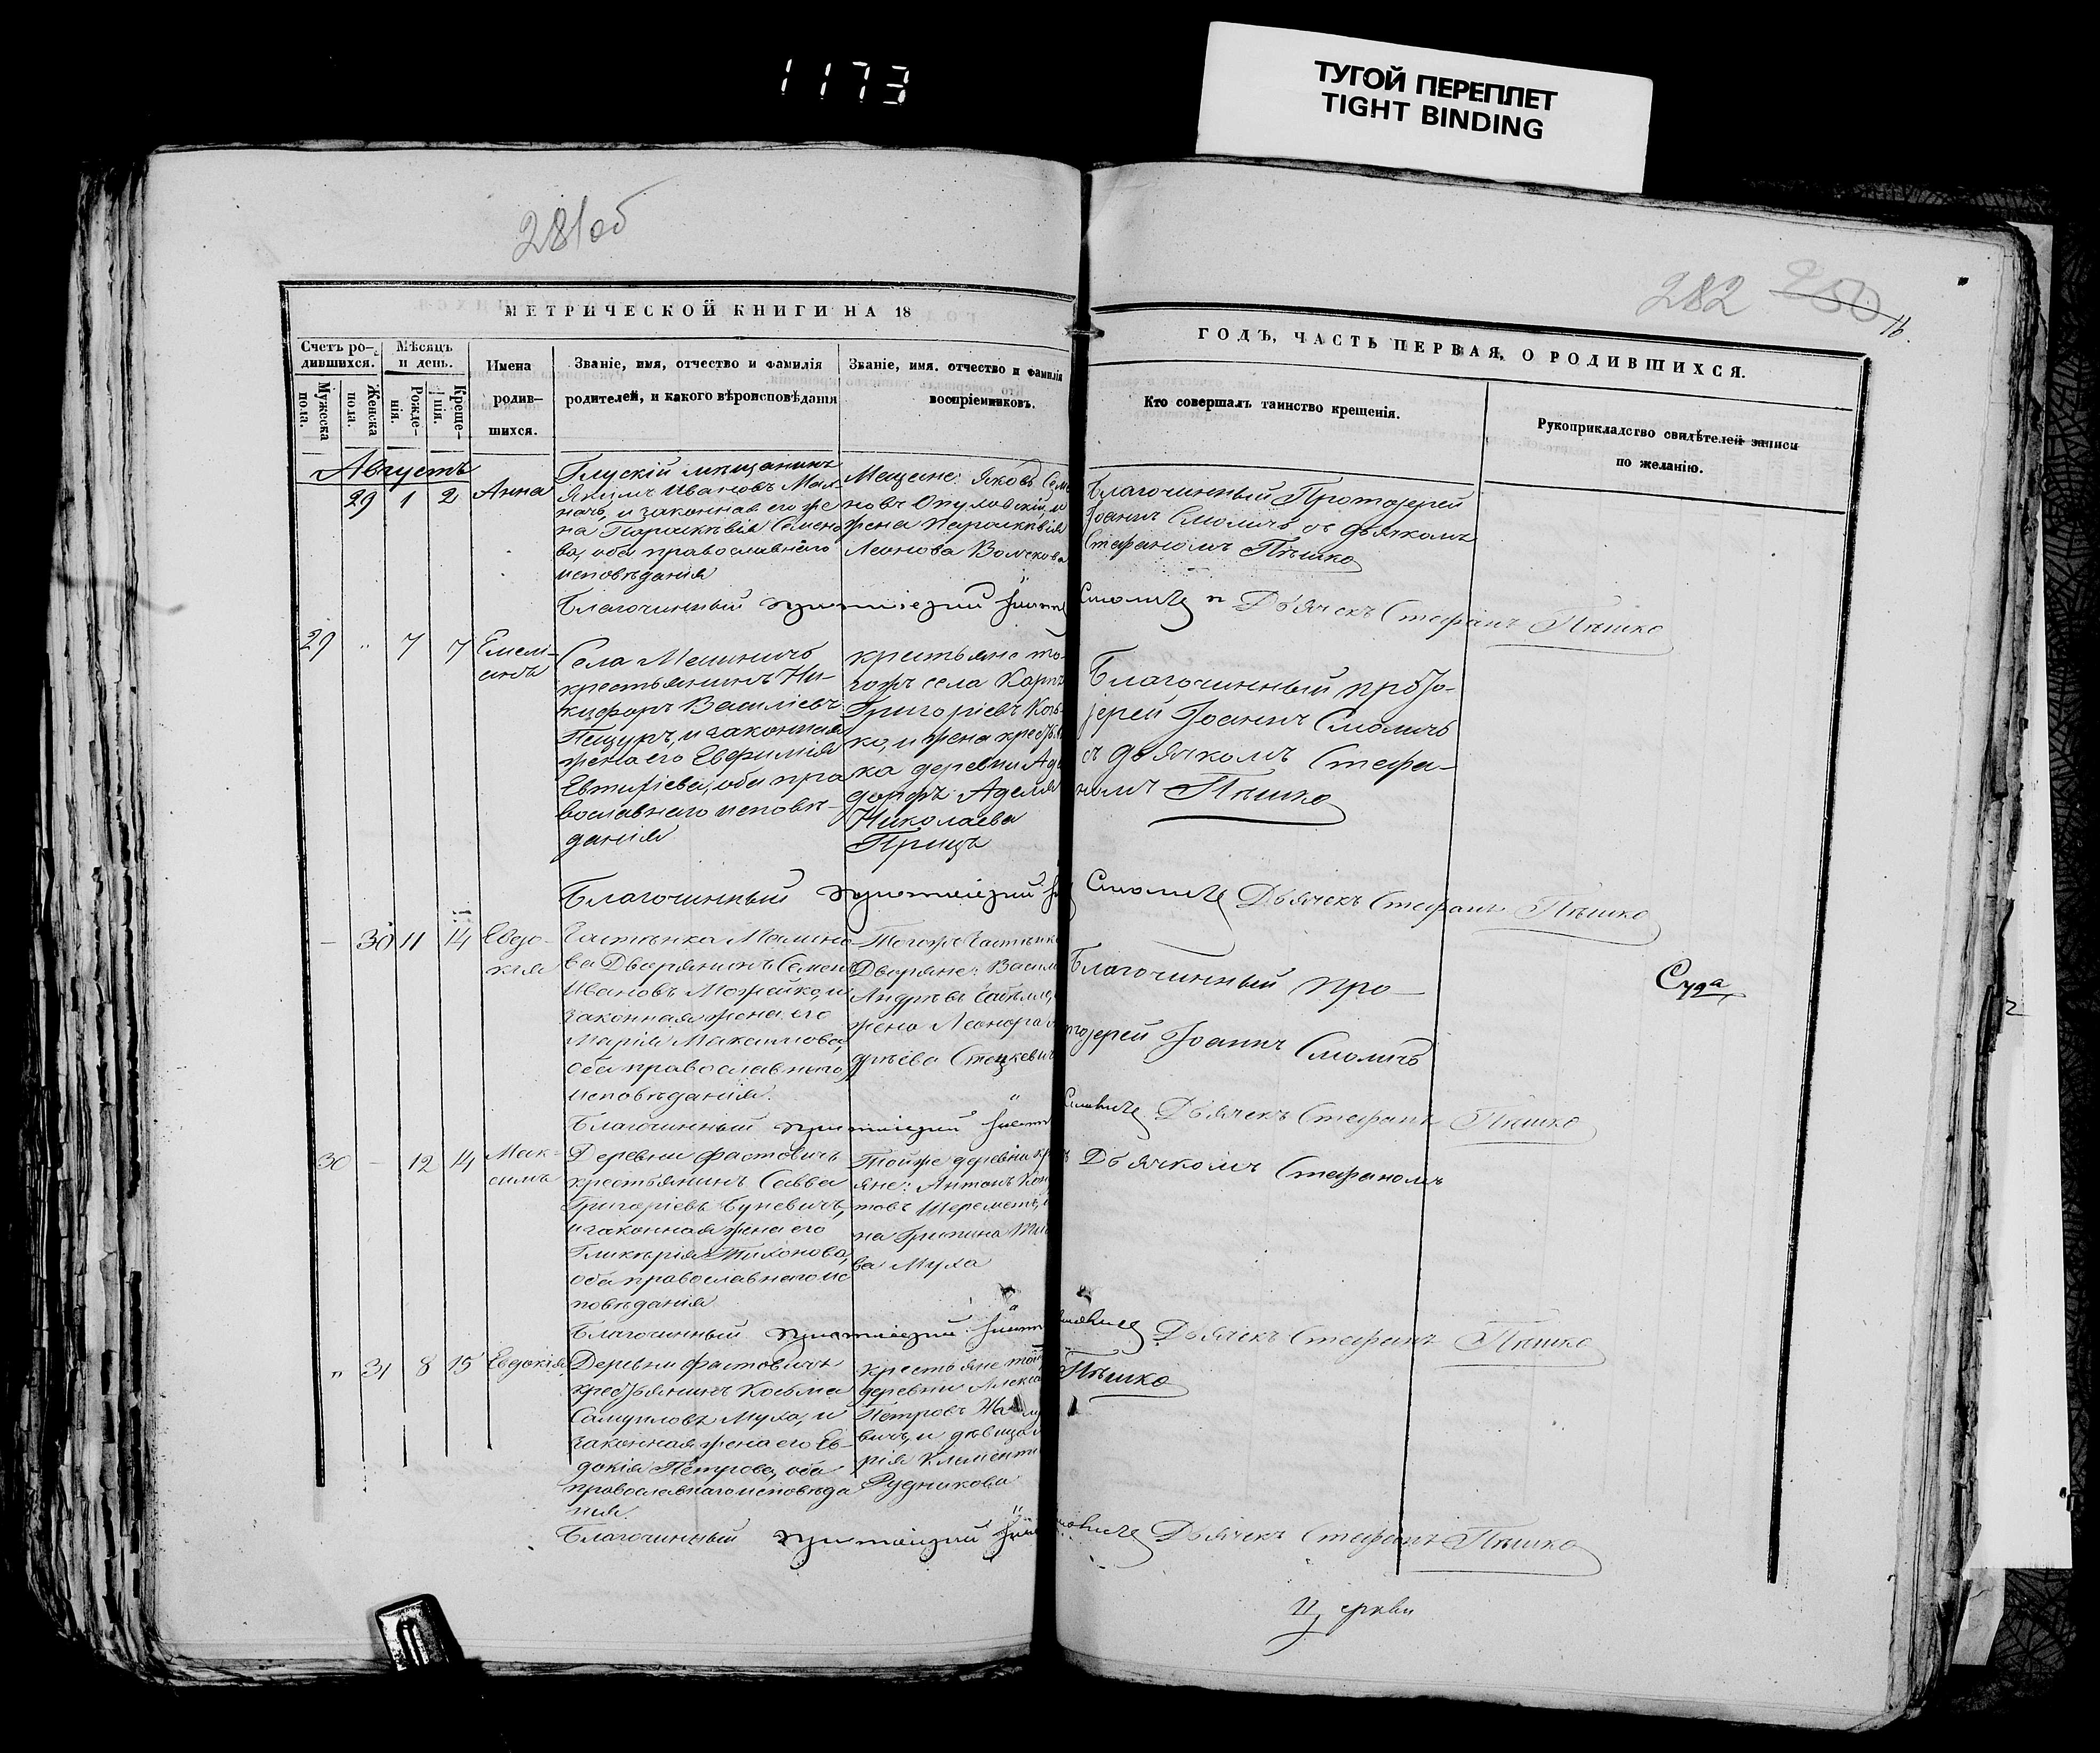 1173
ТУГОЙ ПЕРЕПЛЕТ
TIGHT BINDING
281об
282 250
16.
МЕТРИЧЕСКОЙ КНИГИ НА 18
ГОДЪ, ЧАСТЬ ПЕРВАЯ, О РОДИВШИХСЯ.
Счетъ ро-
дившихся.
Мужеска
пола.
Женска
пола.
Мѣсяцъ
и день.
Рожде-
нія.
Креще-
нія.
Имена
родив-
шихся.
Званіе, имя, отчество и фамилія
родителей, и какого вѣроисповѣданія
Званіе, имя. отчество и фамилія
воспріемниковъ.
Кто совершалъ таинство крещенія.
Рукоприкладство свидѣтелей записи
по желанію.
Августъ
29 1 2
Анна
Глускій мѣщанинъ
Якимъ Ивановъ
и законная его же
на Параскѣвія Семено
ва, оба православнаго
исповѣданія
Мещане: Яковъ Семе
новъ
жена Параскѣвія
Леонова Волчкова
Благочинный Протоіерей
Іоаннъ Смоличъ съ дьячкомъ
Стефаномъ Пѣшко
Благочинный протоіерей Смоличъ Дьячекъ Стефанъ Пѣшко
29 " 7 7
Емелі-
анъ
Села
крестьянинъ Ни-
кифоръ Василіевъ
и законная
жена его Евфимія
Евтихіева, оба пра
вославнаго исповѣ-
данія
крестьяне то-
гожъ села Карпъ
Григоріевъ
ко, и жена
ка деревни
Аделя
Николаева
Прищъ
Благочинный прото-
іерей Іоаннъ Смоличъ
съ дьячкомъ Стефа-
номъ Пѣшко
Благочинный протоіерей Смоличъ Дьячекъ Стефанъ Пѣшко
- 30 11 14
Евдо-
кія
Застѣнка Малино
ва Дворянинъ Семенъ
Ивановъ Можейко, и
законная жена его
Марія Максимова,
оба православнаго
исповѣданія.
Тогожъ Застѣнка
Дворяне: Васил
Андрѣевъ
жена
дрѣева Стецкевичъ
Благочинный про-
тоіерей Іоаннъ Смоличъ
Суда
Благочинный протоіерей Смоличъ Дьячекъ Стефанъ Пѣшко
30 - 12 14
Мак-
симъ
Деревни Фастовичъ
крестьянинъ Савва
Григоріевъ Буневичъ,
и законная жена его
Гликерія Тихонова,
оба православнаго ис
повѣданія
Тойже деревни кр
яне: Антонъ Кон
товъ Шереметъ,
на Грипина
ва Муха
Дьячкомъ Стефаномъ
Благочинный протоіерей Смоличъ Дьячекъ Стефанъ Пѣшко
" 31 8 15
Евдокія
Деревни Фастовичъ
крестьянинъ Косьма
Самуиловъ Муха, и
законная жена его Ев-
докія Петрова, оба
православнаго исповѣда
нія.
крестьяне той
деревни Алекса
Петровъ
вичъ, и дѣвица
рія Климент
Рудникова
Пѣшко
Благочинный протоіерей Смоличъ Дьячекъ Стефанъ Пѣшко
Церкви